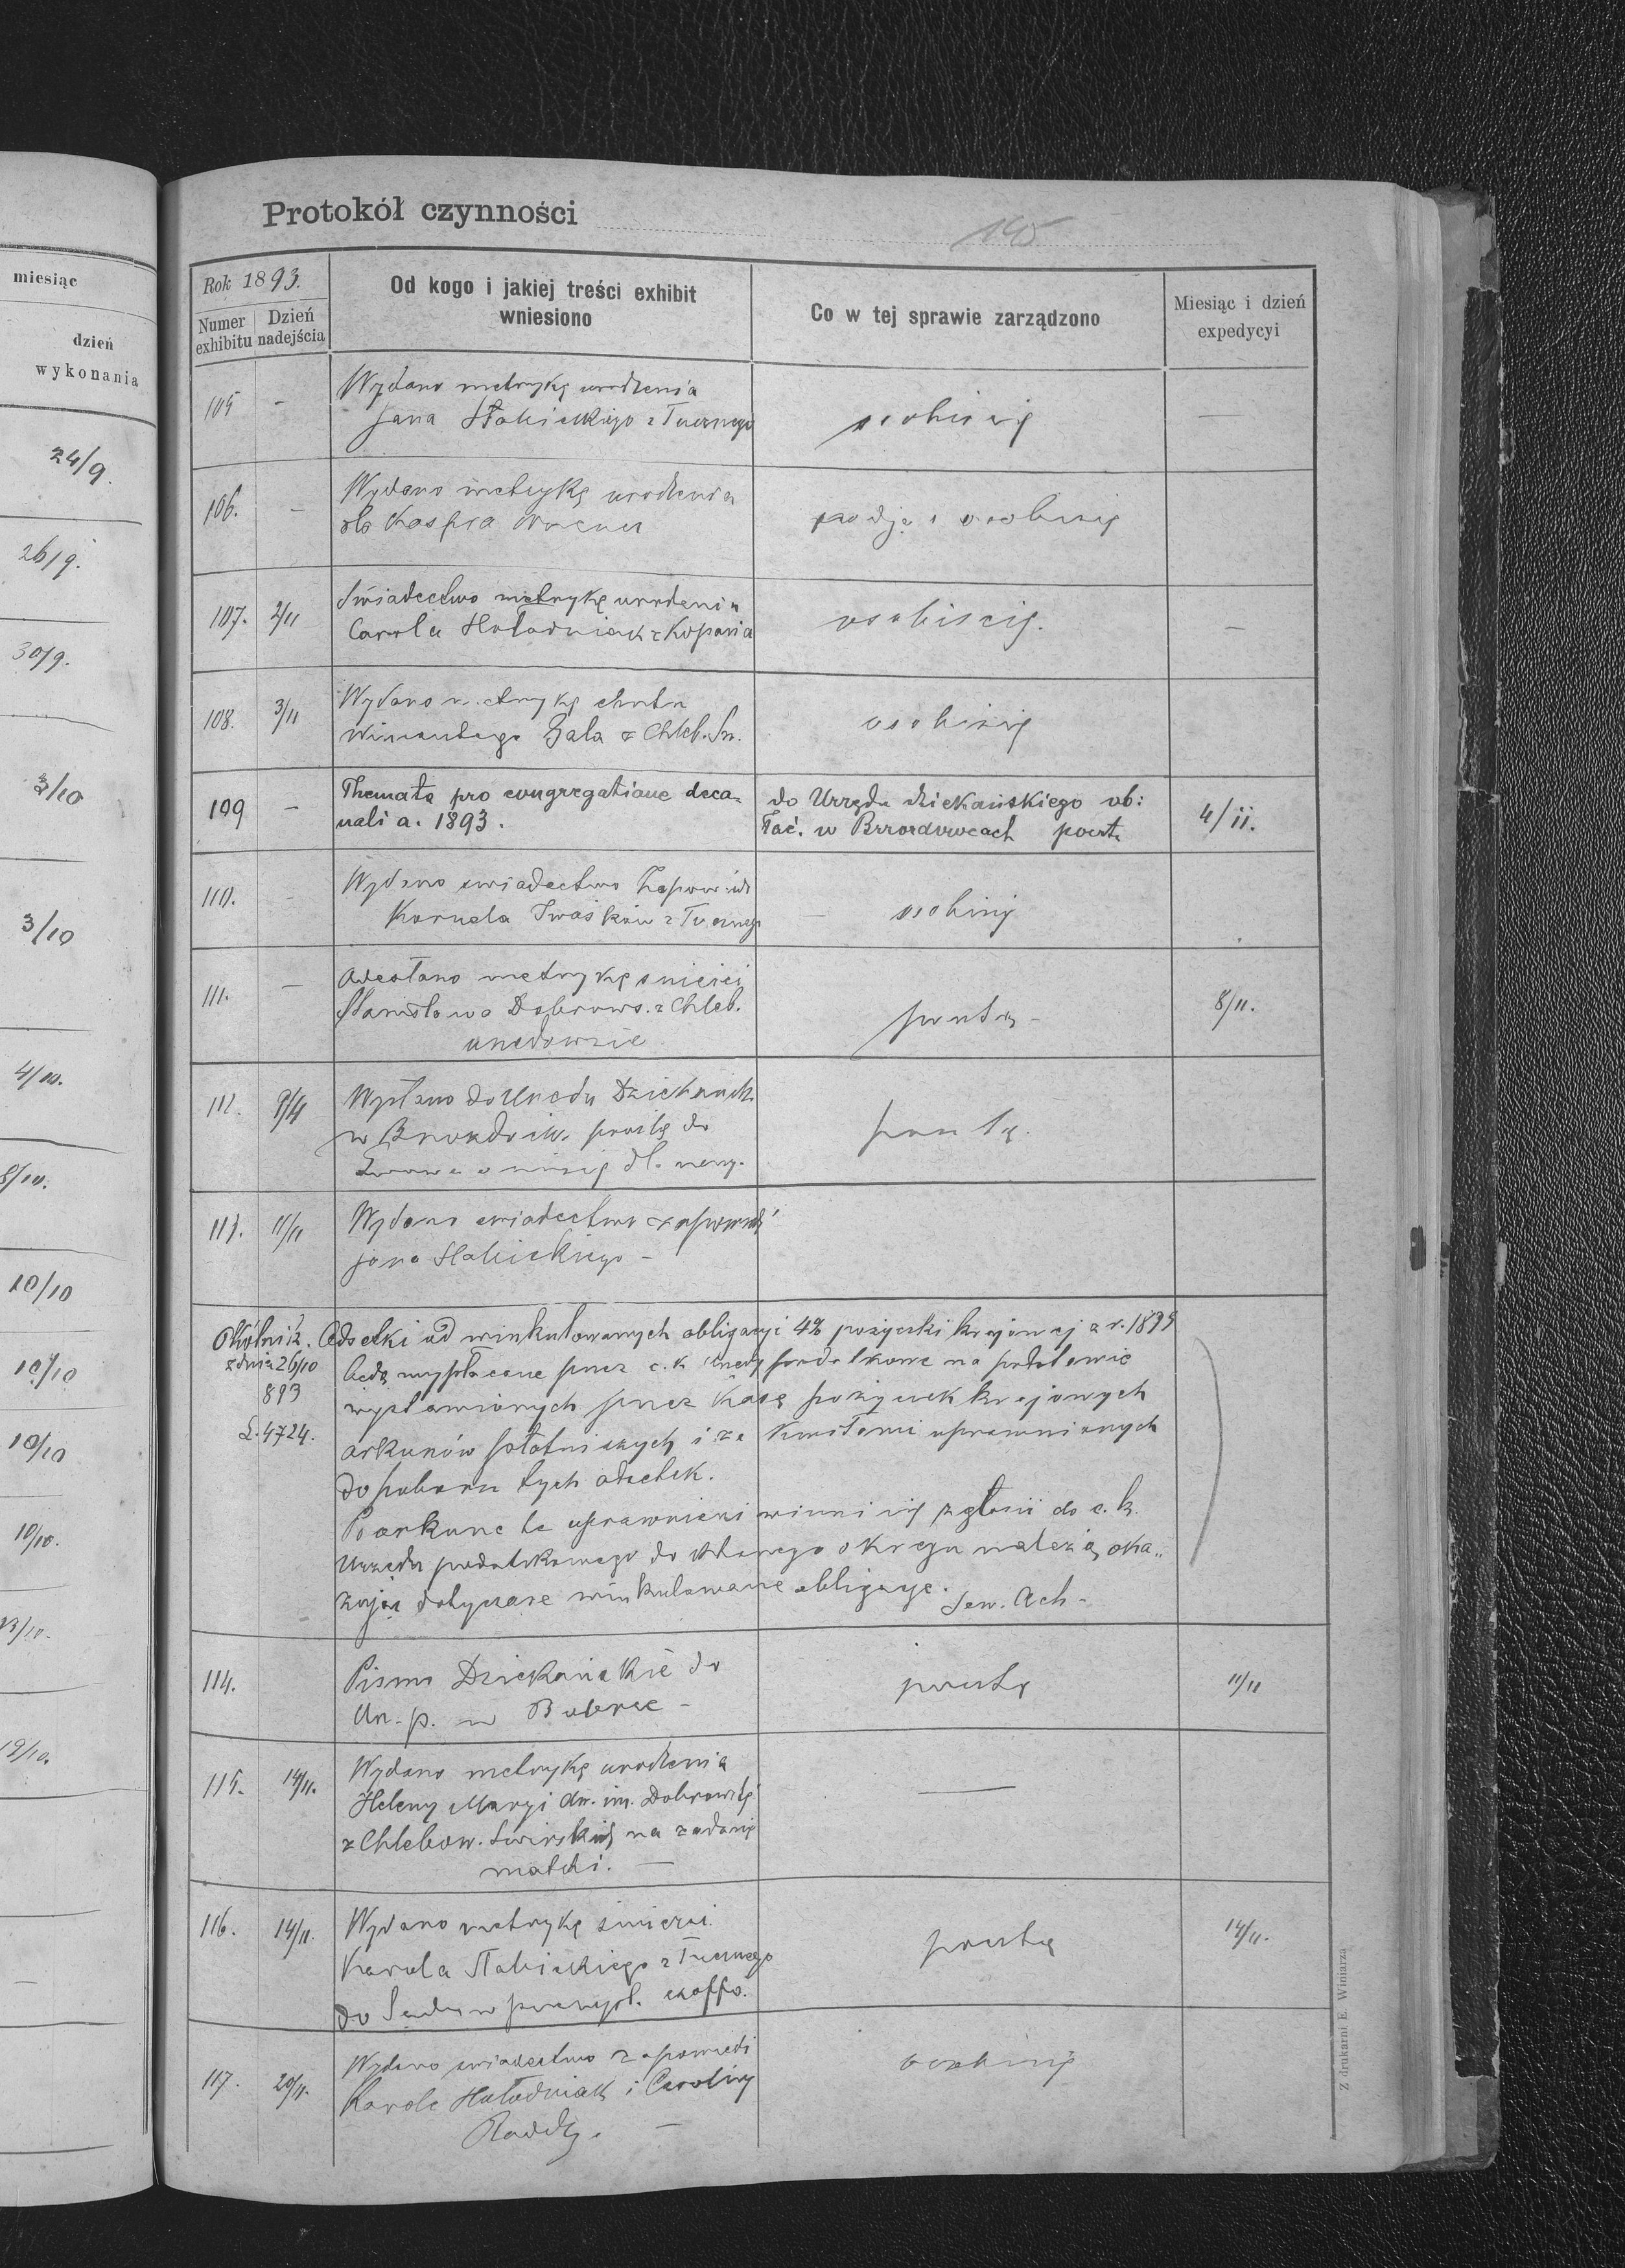 miesiąc
dzień
wykonania
24/9.
26/9.
30/9.
3/10
3/10
4/10.
8/10.
10/10
10/10
10/10
10/10.
13/10.
19/10.
Protokół czynności
195
Rok 1893.
Numer exhibitu
Dzień nadejścia
Od kogo i jakiej treści exhibit
wniesiono
Co w tej sprawie zarządzono
Miesiąc i dzień
expedycyi
105 - Wydano metrykę urodzenia
Jana Słabickiego z Tucznego
osobiście —
106. - Wydano metrykę urodzenia
dla Kaspra
osobiście
107. 2/11 Świadectwo metrykę urodzenia
Carola Hoładniak z Kopania
osobiście. —
108. 3/11 Wydano metrykę chrztu
Wincentego Gala z Chleb. Św.
osobiście
109 - Themata pro congregatione deca-
nali a. 1893.
do Urzędu dziekańskiego ob:
łać. w Brzozdowcach pocztą
4/11.
110. - Wydano świadectwo zapowiedzi
Kornela Iwaśków z Tucznego
— osobiście
111. — Odesłano metrykę śmierci
Stanisława Dobrows. z Chleb.
urzędownie
pocztą - 8/11.
112. Wysłano do Urzędu Dziekańsk.
w Brzozdow. prośbę do
Lwowa o misię
pocztą.
113. 11/11 Wydano świadectwo zapowiedź
Jana Słabickiego -
Okólnik. Odsetki od winkulowanych obligacyi 4% pożyczki krajowej z r. 1893
z dnia 26/10 będą wypłacane przez c.k. urzędy podatkowe na podstawie
893 wystawionych przez Kasę pożyczek krajowych
L. 4724. arkuszów płatniczych i za kwitami uprawnionych
do poboru tych odsetek.
Po arkusze te uprawnieni winni się zgłosić do c.k.
Urzędu podatkowego do którego okręgu należą, oka„
zując dotyczące winkulowane obligacye. Sew. Ach -
114. Pismo Dziekańskie do
Urz. p. w Bóbrce -
pocztą 11/11
115. 14/11. Wydano metrykę urodzenia
Heleny Maryi dw. im. Dobrowską
z Chlebow. Świrskich na żądanie
matki. —
—
116. 14/11. Wydano metrykę śmierci
Karola Słabickiego z Tucznego
do Sądu w Przemyśl. exoffo.
pocztą 14/11.
117. 20/11. Wydano świadectwo zapowiedzi
Karola Hoładniak i Caroliny
Raddy. —
osobiście
Z drukarni E. Winiarza